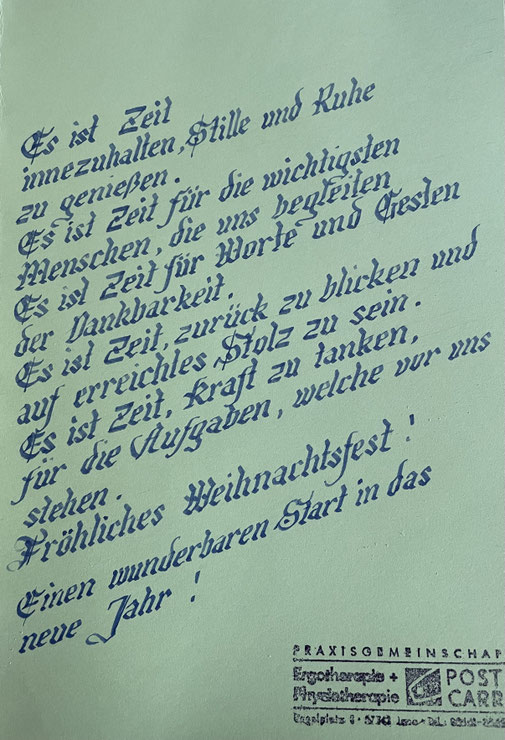 Es ist Zeit
innezuhalten, Stille und Ruhe
zu genießen.
Es ist Zeit für die wichtigsten
Menschen, die uns begleiten
Es ist Zeit für Worte und Gesten
der Dankbarkeit.
Es ist Zeit, zurück zu blicken und
auf erreichtes Stolz zu sein.
Es ist Zeit, kraft zu tanken,
für die Aufgaben, welche vor uns
stehen.
Fröhliches Weihnachtsfest!
Einen wunderbaren Start in das
neue Jahr!
PRAXISGEMEINSCHAF
Ergotherapie +
Physiotherapie
POST
CARR